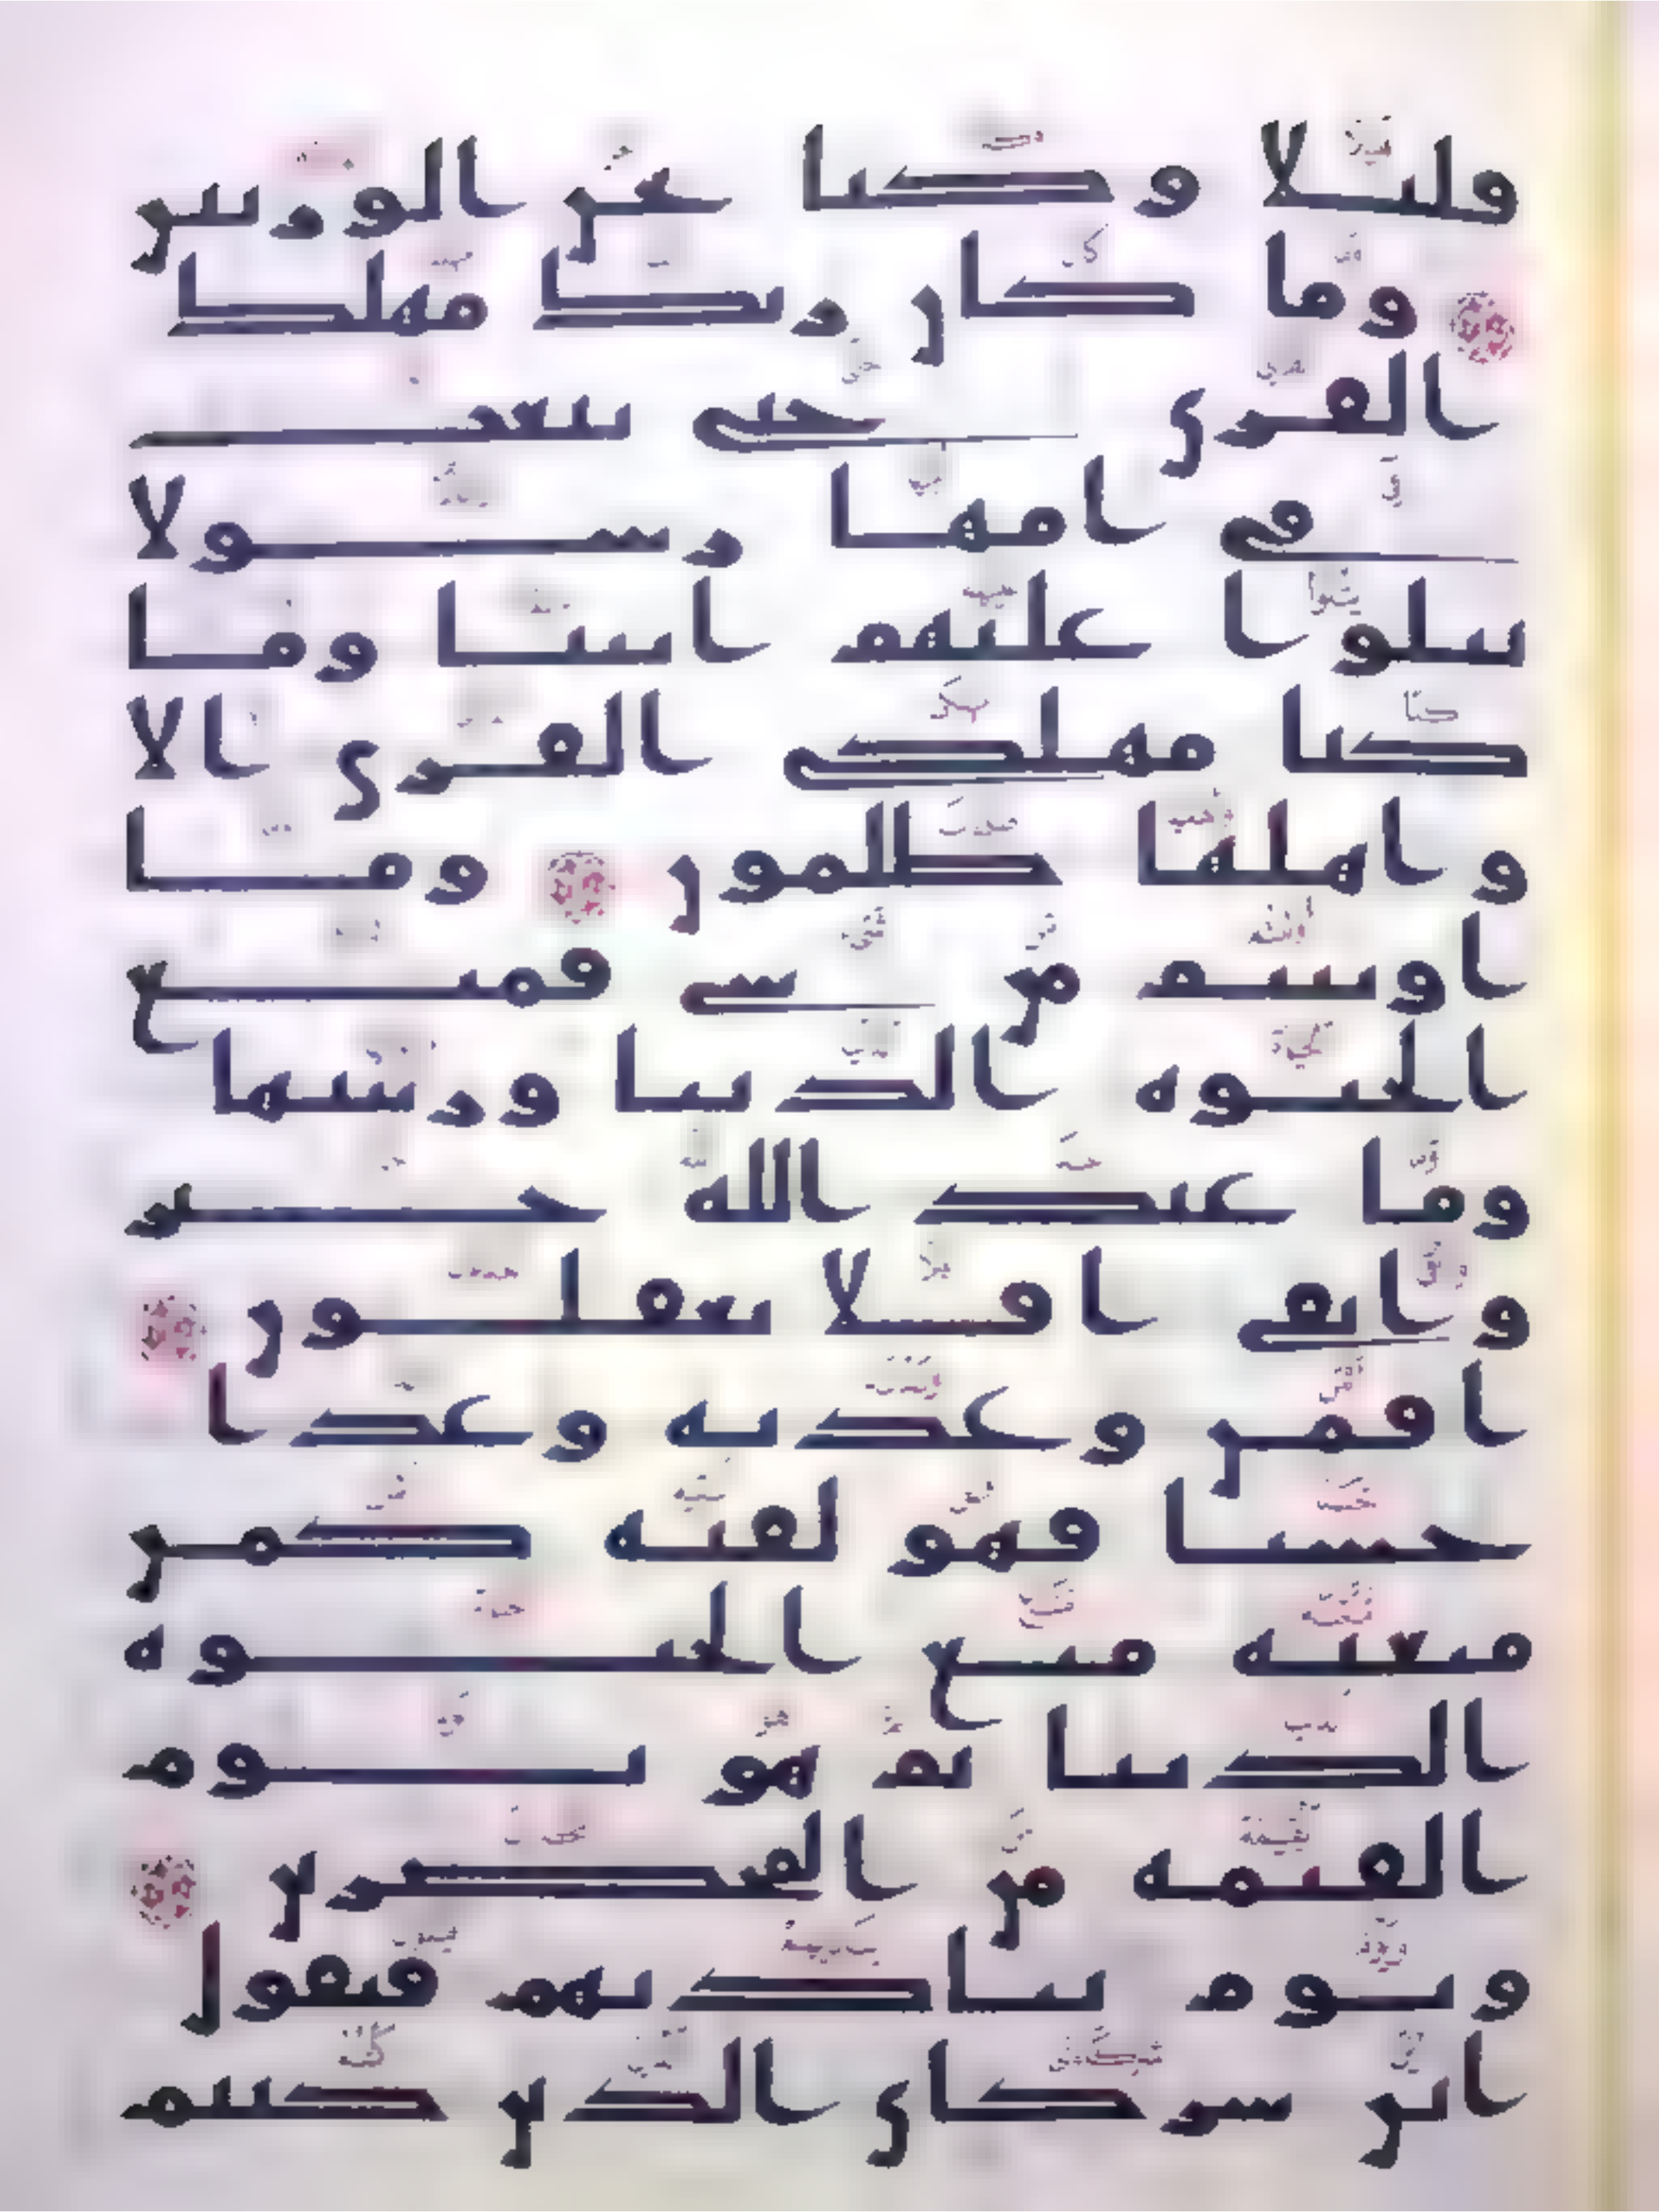 قليلا وكنا نحن الورثين
وما كان ربك مهلك
القرى حتى يبعث
في امها رسولا
يتلوا عليهم ايتنا وما
كنا مهلكي القرى الا
واهلها ظلمون وما
اوتيتم من شي فمتع
الحيوه الدنيا وزينتها
وما عند الله خير
وابقى افلا تعقلون
افمن وعدنه وعدا
حسنا فهو لقيه كمن
متعنه متع الحيوه
الدنيا ثم هو يوم
القيمه من المحضرين
ويوم يناديهم فيقول
اين شركاي الذين كنتم